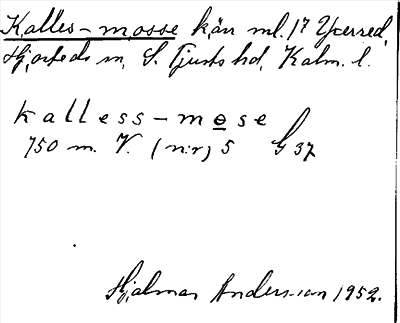 Kalles-mosse kärr ml. 17 Yxered,
Hjorteds sn, S. Tjusts hd, Kalm. l.
kalless-mose
750 m. V. (nr) 5 G 37
Hjalmar Andersson 1952.